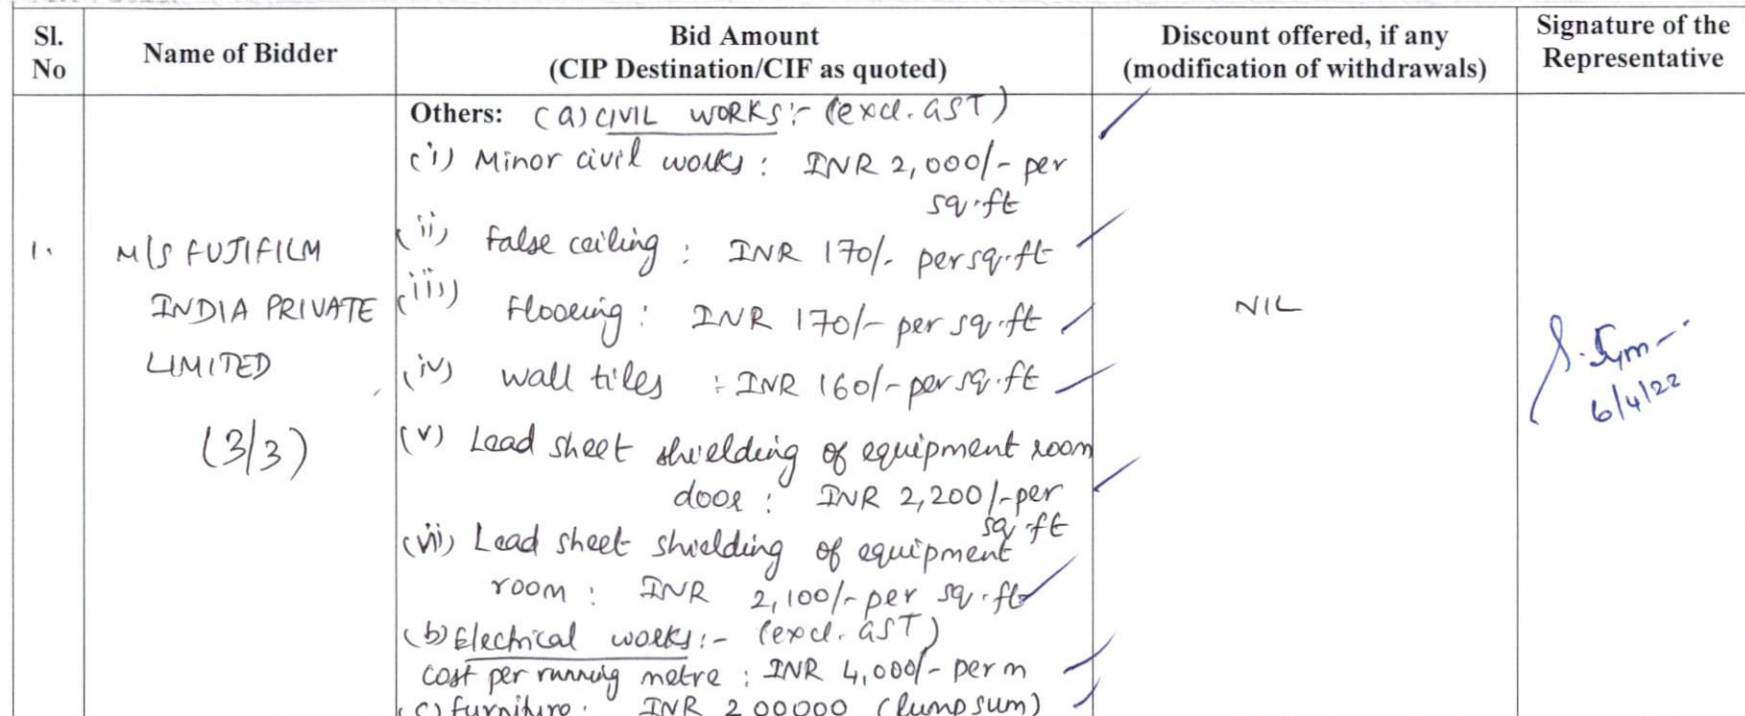 Sl. No
Name of Bidder
Bid Amount
(CIP Destination/CIF as quoted)
Discount offered, if any
(modification of withdrawals)
Signature of the
Representative
1.
M/S FUJIFILM
INDIA PRIVATE
LIMITED
(3/3)
Others: (a) CIVIL WORKS:- (excl. GST)
(i) Minor civil works : INR 2,000/- per
sq.ft
(ii) False ceiling : INR 170/- per sq.ft
(iii) Flooring : INR 170/- per sq.ft
(iv) wall tiles : INR 160/- per sq.ft
(v) Lead sheet shielding of equipment room
door : INR 2,200/- per
sq.ft
(vii) Lead sheet shielding of equipment
room : INR 2,100/- per sq.ft
(b) Electrical works:- (excl. GST)
cost per running metre : INR 4,000/- per m
(c) furniture : INR 200000 (lumpsum)
NIL
6/4/22